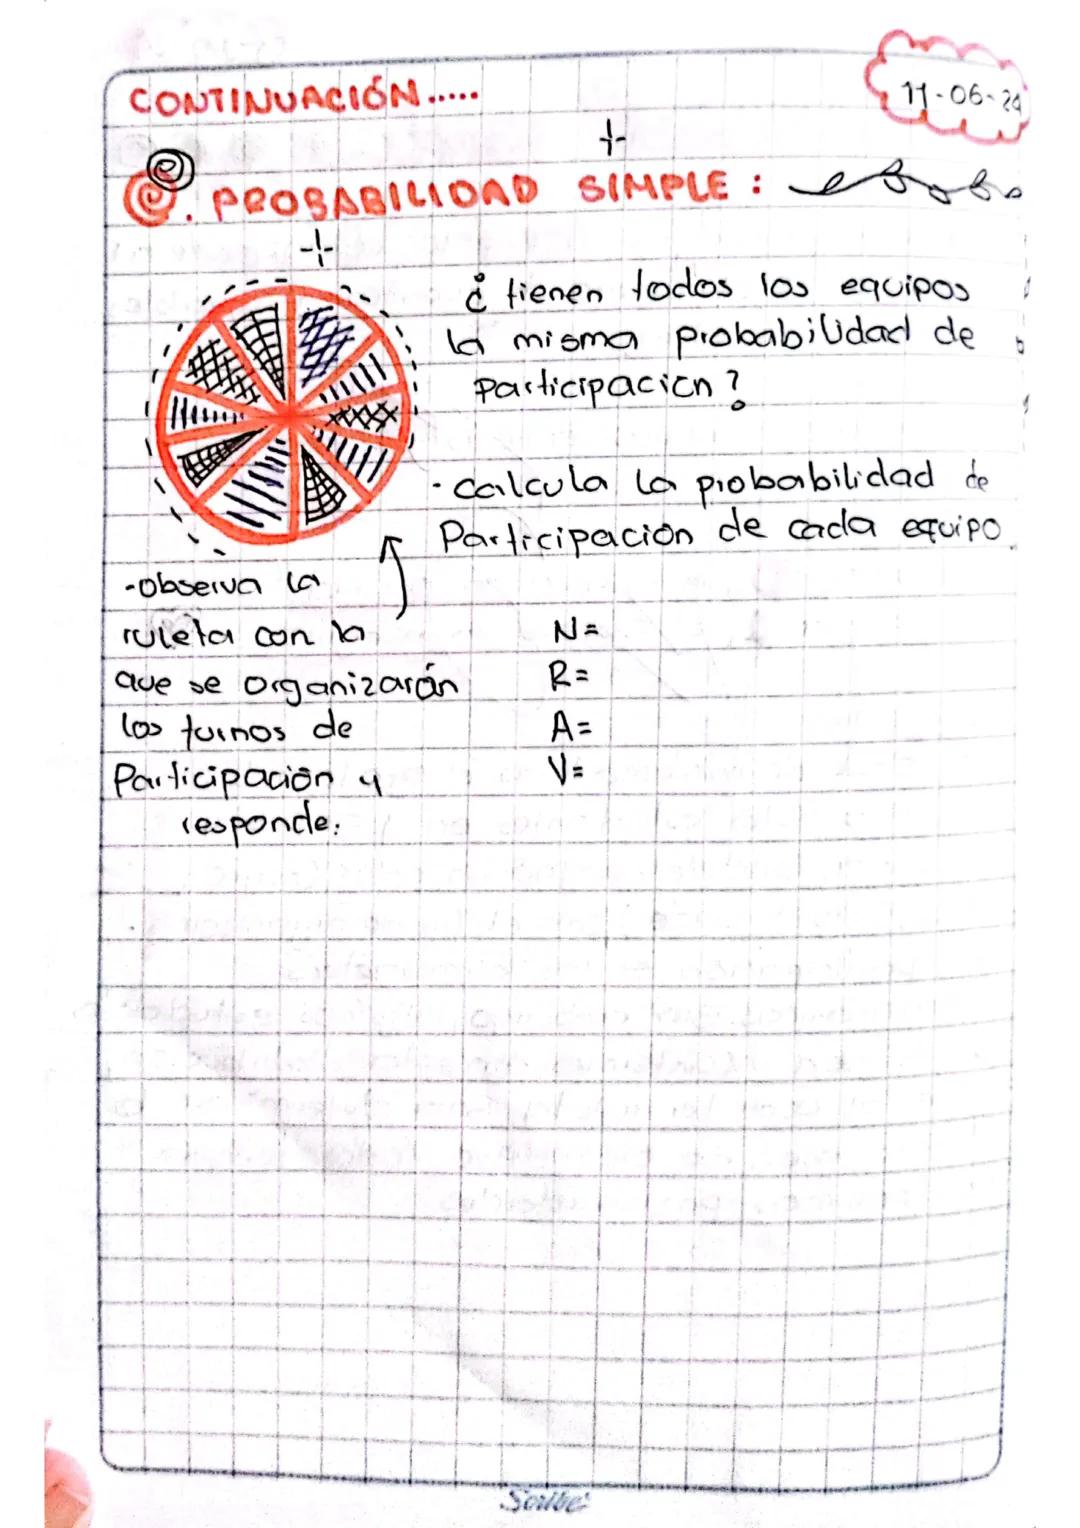 CONTINUACIÓN.....
11-06-24
PROBABILIDAD SIMPLE :
¿ tienen todos los equipos
la misma probabilidad de
participación ?
- calcula la probabilidad de
Participación de cada equipo.
-observa la
ruleta con la
que se organizarán
los turnos de
Participación y
responde.
N=
R=
A=
V=
Scribe